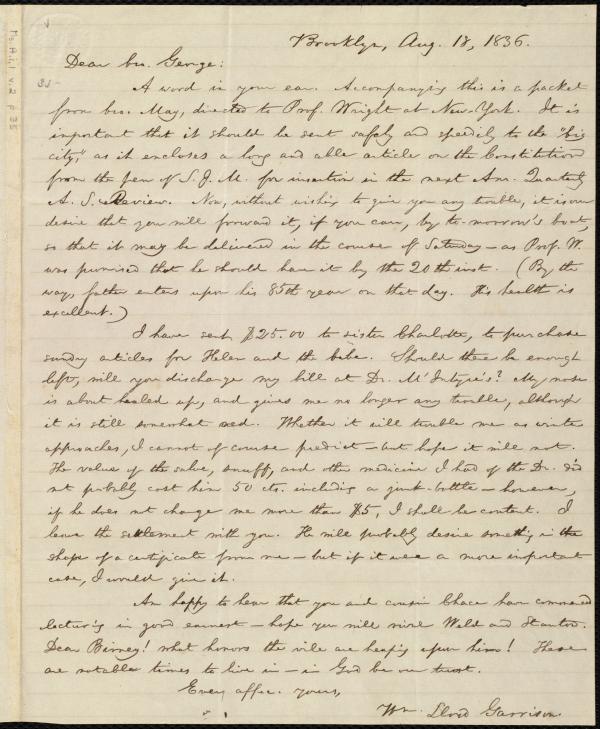 Brooklyn, Aug. 18, 1836.
Dear bro. George:
A word in your ear. Accompanying this is a packet
from bro. May, directed to Prof. Wright at New-York. It is
important that it should be sent safely and speedily to the "big
city," as it encloses a long and able article on the Constitution
from the pen of S. J. M. for insertion in the next Am. Quarterly
A. S. Review. Now, without wishing to give you any trouble, it is our
desire that you will forward it, if you can, by to-morrow's boat,
so that it may be delivered in the course of Saturday—as Prof. W.
was promised that he should have it by the 20th inst. (By the
way, father enters upon his 85th year on that day. His health is
excellent.)
I have sent $25.00 to sister Charlotte, to purchase
sundry articles for Helen and the babe. Should there be enough
left, will you discharge my bill at Dr. M'Intyre's? My nose
is about healed up, and gives me no longer any trouble, although
it is still somewhat red. Whether it will trouble me as winter
approaches, I cannot of course predict—but hope it will not.
The value of the salve, snuff, and other medicine I had of the Dr. did
not probably cost him 50 cts. including a junk-bottle—however,
if he does not charge me more than $5, I shall be content. I
leave the settlement with you. He will probably desire something in the
shape of a certificate from me—but if it were a more important
case, I would give it.
Am happy to hear that you and cousin Chace have commenced
lecturing in good earnest—hope you will rival Weld and Stanton.
Dear Birney! what honors the vile are heaping upon him! These
are notable times to live in—in God be our trust.
Ever affec. yours,
Wm. Lloyd Garrison
Ms.A.1.1 v.2 p.35
35